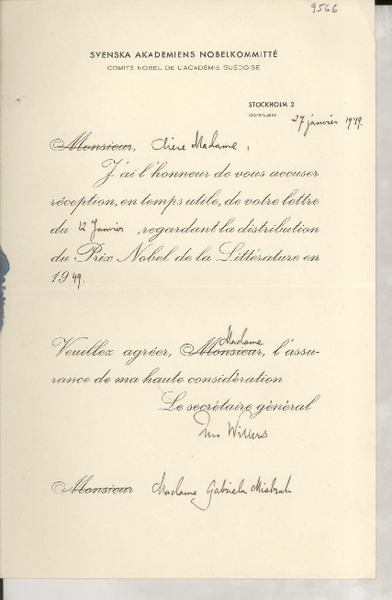 9566
SVENSKA AKADEMIENS NOBELKOMMITTÉ
COMITÉ NOBEL DE L'ACADÉMIE SUÉDOISE
STOCKHOLM 2
27 janvier 1949.
Monsieur, Chère Madame,
J'ai l'honneur de vous accuser
réception, en temps utile, de votre lettre
du 12 Janvier, regardant la distribution
du Prix Nobel de la Littérature en
1949.
Madame
Veuillez agréer, Monsieur, l'assu-
rance de ma haute considération
Le secrétaire général
Uno Willers
Monsieur Madame Gabriela Mistral